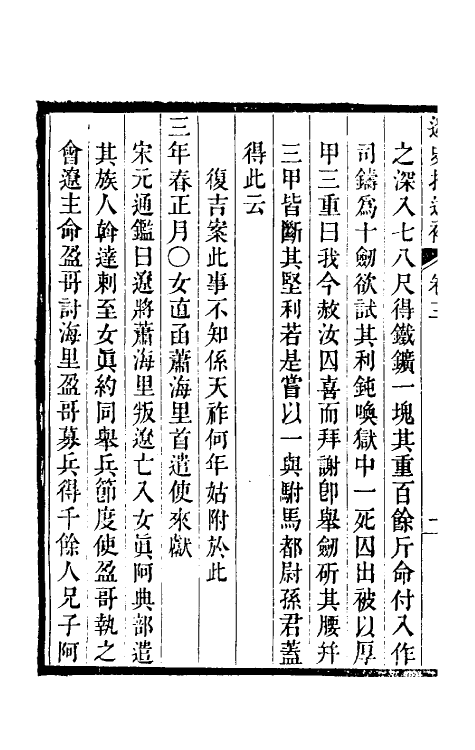 遼史拾遺補 卷三
之深入七八尺得鐵鑛一塊其重百餘斤命付入作
司鑄爲十劒欲試其利鈍喚獄中一死囚出被以厚
甲三重曰我今赦汝囚喜而拜謝卽舉劒斫其腰幷
三甲皆斷其堅利若是嘗以一與駙馬都尉孫君葢
得此云
復吉案此事不知係天祚何年姑附於此
三年春正月〇女直函蕭海里首遣使來獻
宋元通鑑曰遼將蕭海里叛遼亡入女眞阿典部遣
其族人斡達剌至女眞約同舉兵節度使盈哥執之
會遼主命盈哥討海里盈哥募兵得千餘人兄子阿